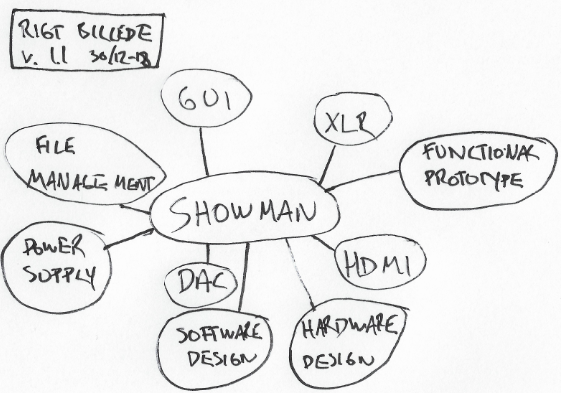 RIGT BILLEDE
V. 1.1 30/12-18
GUI
XLR
FILE
MANAGEMENT
FUNCTIONAL
PROTOTYPE
SHOWMAN
POWER
SUPPLY
DAC
HDMI
SOFTWARE
DESIGN
HARDWARE
DESIGN